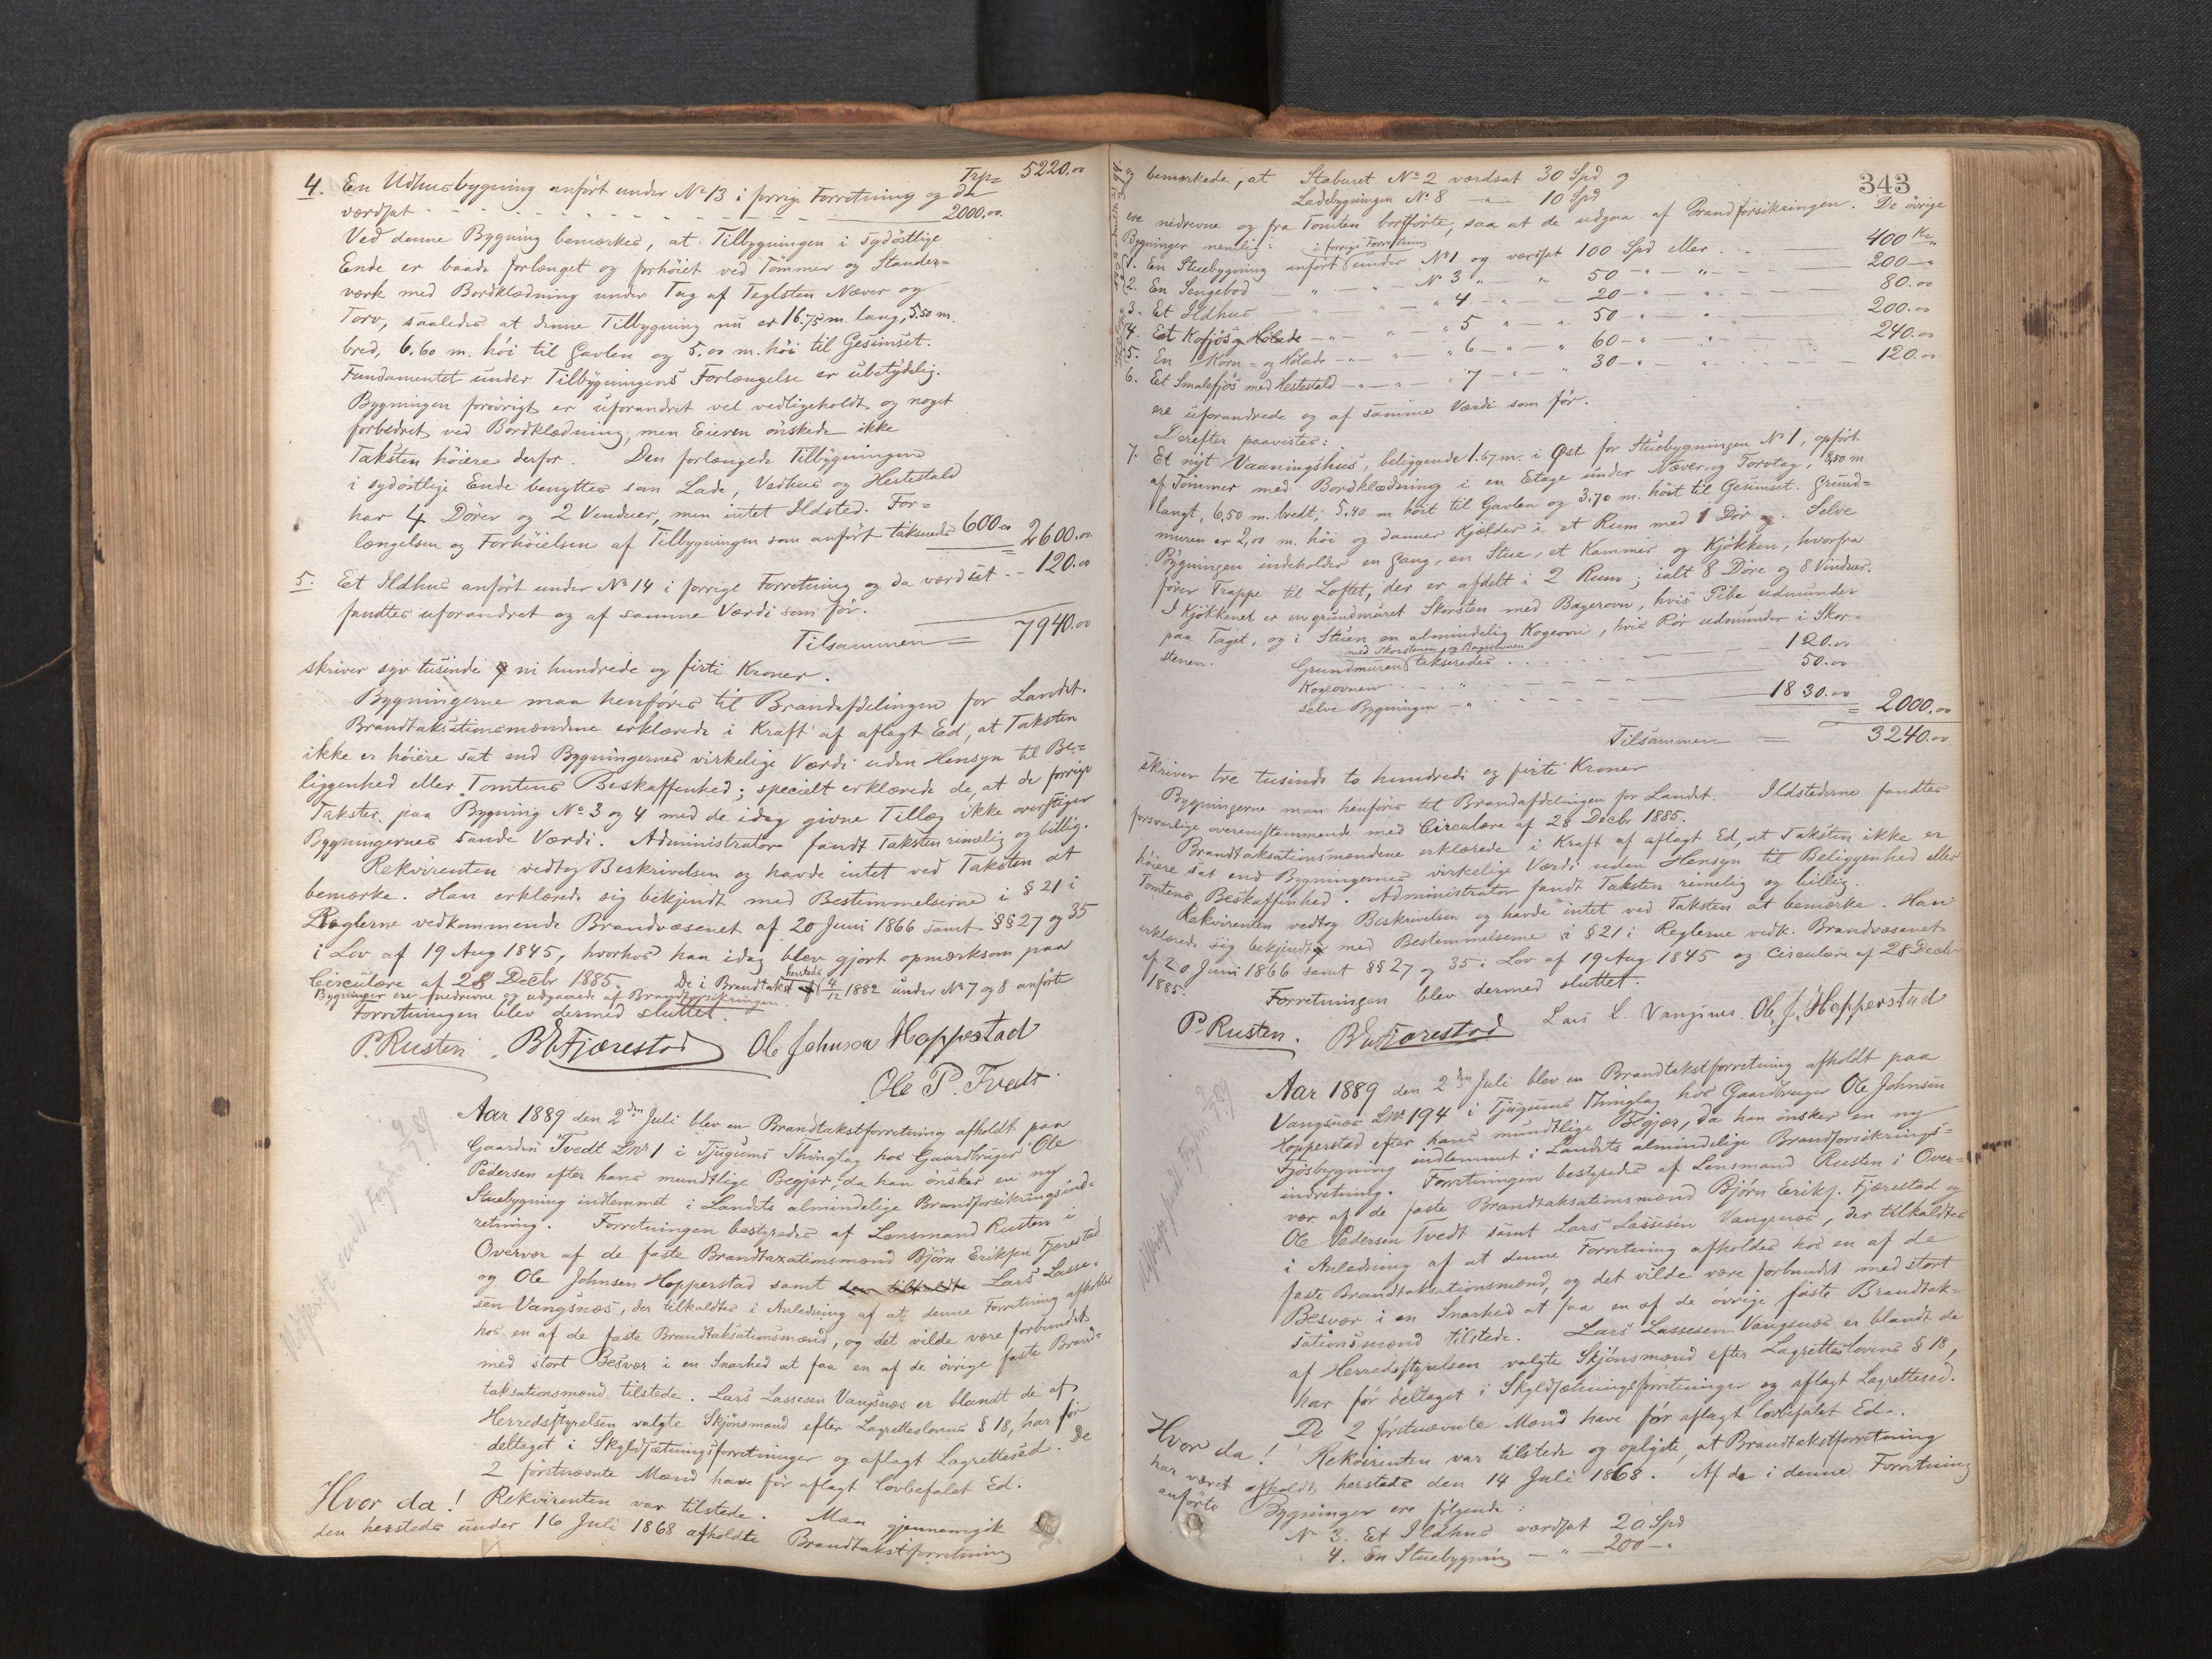 Trp = 5220.00
4. En Udhusbygning anført under No 13 i forrige Forretning og da
værdsat - - - - - - - - 2000.00
Ved denne Bygning bemærkes, at Tilbygningen i sydöstlige
Ende er baade forlænget og forhöiet ved Tömmer og Stander=
værk med Bordklædning under Tag af Teglsten Næver og
Torv, saaledes at denne Tilbygning nu er 16.75 m. lang, 5.50 m.
bred, 6.60 m. höi til Gavlen og 5.00 m. höi til Gesimset.
Fundamentet under Tilbygningens Forlængelse er ubetydelig.
Bygningen forövrigt er uforandret vel vedligeholdt og noget
forbedret ved Bordklædning, men Eieren önskede ikke
Taksten höiere derfor. Den forlængede Tilbygningen
i sydöstlige Ende benyttes som Lade, Vedhus og Hestestald
har 4 Dörer og 2 Vinduer, men intet Ildsted. For=
længelsen og Forhöielsen af Tilbygningen som anfört taksends 600.00 = 2600.00
5. Et Ildhus anfört under No 14 i forrige Forretning og da værdsat - - 120.00
fandtes uforandret og af samme Værdi som för.
Tilsammen = 7940.00
skriver syv tusinde ni hundrede og firti Kroner.
Bygningerne maa henföres til Brandafdelingen for Landet.
Brandtaksationsmændene erklærede i Kraft af aflagt Ed, at Taksten
ikke er höiere sat end Bygningernes virkelige Værdi uden Hensyn til Be=
liggenhed eller Tomtens Beskaffenhed; specielt erklærede de, at de forrige
Takster paa Bygning No 3 og 4 med de idag givne Tillæg ikke overstiger
Bygningernes sande Værdi. Administrator fandt Taksten rimelig og billig.
Rekvirenten vedtog Beskrivelsen og havde intet ved Taksten at
bemærke. Han erklærede sig bekjendt med Bestemmelserne i § 21 i
Reglerne vedkommende Brandvæsenet af 20 Juni 1866 samt §§ 27 og 35
i Lov af 19 Aug 1845, hvorhos han idag blev gjort opmærksom paa
Circulære af 28 Decbr 1885. De i Brandtakst hersteds af 4/12 1882 under No 7 og 8 anförte
Bygninger ere nedrevne og udgaaede af Brandforsikringen.
Forretningen blev dermed sluttet.
P. Rusten. B E Fjærestad Ole Johnson Hopperstad
Ole P. Tvedt.
Aar 1889 den 2den Juli blev en Brandtakstforretning afholdt paa
Gaarden Tvedt LNo 1 i Tjugums Thinglag hos Gaardbruger Ole
Pedersen efter hans mundtlige Begjær, da han önsker en ny
Stuebygning indlemmet i Landets almindelige Brandforsikringsind=
retning. Forretningen bestyredes af Lensmand Rusten i
Overvær af de faste Brandtaxationsmænd Björn Eriksen Fjærestad
og Ole Johnsen Hopperstad samt Lars Lasse=
sen Vangsnæs, der tilkaldtes i Anledning af at denne Forretning afholdes
hos en af de faste Brandtaksationsmænd, og det vilde være forbundet
med stort Besvær i en Snarhed at faa en af de övrige faste Brand=
taksationsmænd tilstede. Lars Lassesen Vangsnæs er blandt de af
Herredsstyrelsen valgte Skjönsmænd efter Lagretteslovens § 18, har för
deltaget i Skyldsætningsforretninger og aflagt Lagrettesed. De
2 förstnævnte Mænd have för aflagt lovbefalet Ed.
Hvor da! Rekvirenten var tilstede. Man gjennemgik
den herstedes under 16 Juli 1868 afholdte Brandtakstforretning
343
og bemærkede, at Staburet No 2 værdsat 30 Spd og
Ladebygningen No 8 - 10 Spd
ere nedrevne og fra Tomten bortförte, saa at de udgaar af Brandforsikringen. De övrige
Bygninger nemlig:
1. En Stuebygning anfört i forrige Forretning under No 1 og værdsat 100 Spd eller - - 400 Kr
2. En Sengebod - No 3 - 50 - - 200 -
3. Et Ildhus - 4 - 20 - - 80.00
4. Et Kofjös og Hölade - 5 - 50 - - 200.00
5. En Korn= og Hölade - 6 - 60 - - 240.00
6. Et Smalefjös med Hestestald - 7 - 30 - - 120.00
ere uforandrede og af samme Værdi som för.
Derefter paavistes:
7. Et nyt Vaaningshus, beliggende 1.67 m. i Öst for Stuebygningen No 1, opfört
af Tömmer med Bordklædning i en Etage under Næver og Torvtag, 8,50 m.
langt, 6,50 m. bredt, 5.40 m höit til Gavlen og 3.70 m. höit til Gesimset. Grund=
muren er 2,00 m. höi og danner Kjælder i et Rum med 1 Dör. Selve
Bygningen indeholder en Gang, en Stue, et Kammer og Kjökken, hvorfra
förer Trappe til Loftet, der er afdelt i 2 Rum; ialt 8 Döre og 8 Vinduer.
I Kjökkenet er en grundmuret Skorsten med Bagerovn, hvis Pibe udmunder
paa Taget, og i Stuen en almindelig Kogeovn, hvis Rör udmunder i Skor=
stenen.
Grundmuren med Skorstenen og Bagerovnen takseredes - - 120.00
Kogeovnen - - 50.00
selve Bygningen - - 1830.00 = 2000.00
Tilsammen = 3240.00
skriver tre tusinde to hundrede og firti Kroner
Bygningerne maa henföres til Brandafdelingen for Landet. Ildstederne fandtes
forsvarlige overensstemmende med Circulære af 28 Decbr 1885.
Brandtaksationsmændene erklærede i Kraft af aflagt Ed, at Taksten ikke er
höiere sat end Bygningernes virkelige Værdi uden Hensyn til Beliggenhed eller
Tomtens Beskaffenhed. Administrator fandt Taksten rimelig og billig.
Rekvirenten vedtog Beskrivelsen og havde intet ved Taksten at bemærke. Han
erklærede sig bekjendt med Bestemmelserne i § 21 i Reglerne vedk. Brandvæsenet
af 20 Juni 1866 samt §§ 27 og 35 i Lov af 19 Aug 1845 og Circulære af 28 Decbr
1885.
Forretningen blev dermed sluttet.
P. Rusten. B E Fjærestad Lars L. Vangsnes. Ole J. Hopperstad
Aar 1889 den 2den Juli blev en Brandtakstforretning afholdt paa
Vangsnæs LNo 194 i Tjugums Thinglag hos Gaardbruger Ole Johnsen
Hopperstad efter hans mundtlige Begjær, da han önsker en ny
Fjösbygning indlemmet i Landets almindelige Brandforsikrings=
indretning. Forretningen bestyredes af Lensmand Rusten i Over=
vær af de faste Brandtaksationsmænd Björn Eriks. Fjærestad og
Ole Pedersen Tvedt samt Lars Lassesen Vangsnæs, der tilkaldtes
i Anledning af at denne Forretning afholdes hos en af de
faste Brandtaksationsmænd, og det vilde være forbundet med stort
Besvær i en Snarhed at faa en af de övrige faste Brandtak=
sationsmænd tilstede. Lars Lassesen Vangsnæs er blandt de
af Herredsstyrelsen valgte Skjönsmænd efter Lagretteslovens § 18,
har för deltaget i Skyldsætningsforretninger og aflagt Lagrettesed.
De 2 förstnævnte Mænd have för aflagt lovbefalet Ed.
Hvor da! Rekvirenten var tilstede og oplyste, at Brandtakstforretning
har været afholdt herstedes den 14 Juli 1868. Af de i denne Forretning
anförte Bygninger ere fölgende:
No 3. Et Ildhus værdsat 20 Spd
4. En Stuebygning - 200 -